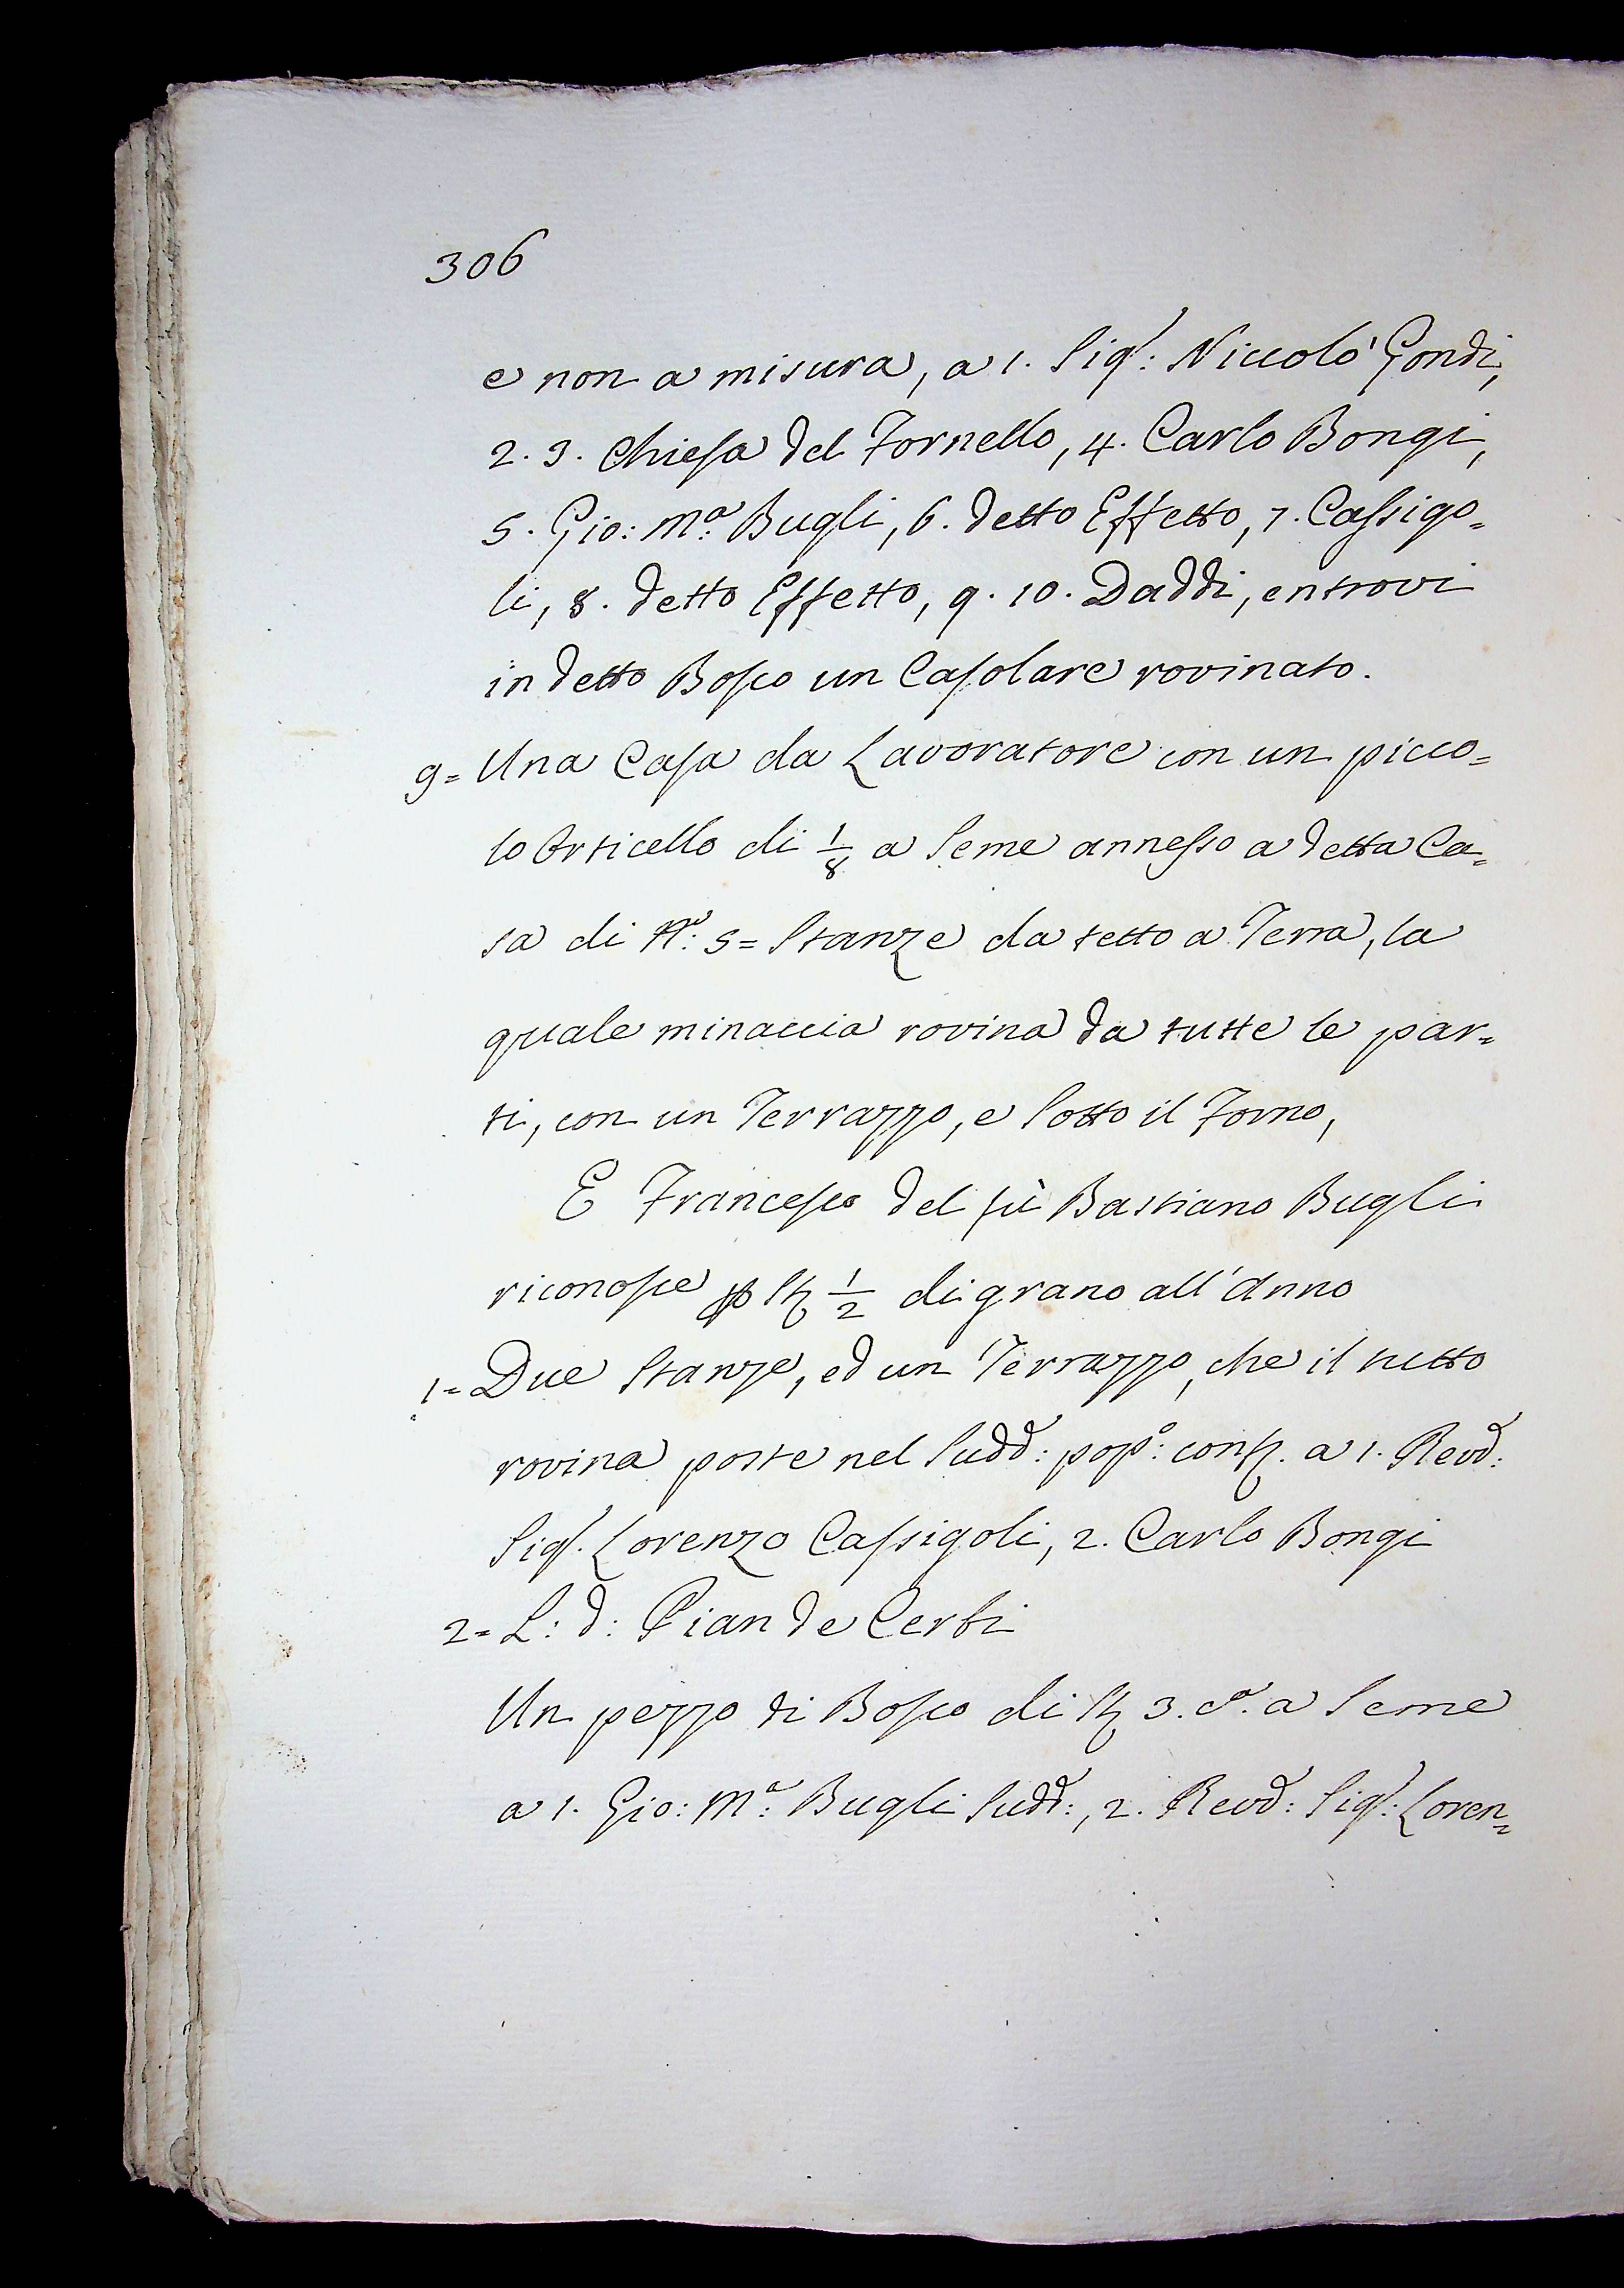 306
e non a misura, a 1. Sig.r: Niccolò Gondi,
2. 3. Chiesa del Fornello, 4. Carlo Bongi,
5. Gio: M.a: Bugli, 6. detto Effetto, 7. Cassigo=
li, 8. detto Effetto, 9. 10. Daddi, entrovi
in detto Bosco un Casolare rovinato.
9= Una Casa da Lavoratore con un picco=
lo Orticello di 1/8 a Seme annesso a detta Ca=
sa di N.o: 5= Stanze da tetto a Terra, la
quale minaccia rovina da tutte le par=
ti, con un Terrazzo, e Sotto il Forno,
E Francesco del fù Bastiano Bugli
riconosce p St 1/2 di grano all'Anno
1= Due Stanze, ed un Terrazzo, che il tutto
rovina poste nel Sudd: pop.o: conf. a 1. Revd:
Sig.r Lorenzo Cassigoli, 2. Carlo Bongi
2= L: d: Pian de Cerbi
Un pezzo di Bosco di St 3. c.a a Seme
a 1. Gio: M.a: Bugli Sudd:, 2. Revd: Sig.r: Loren=